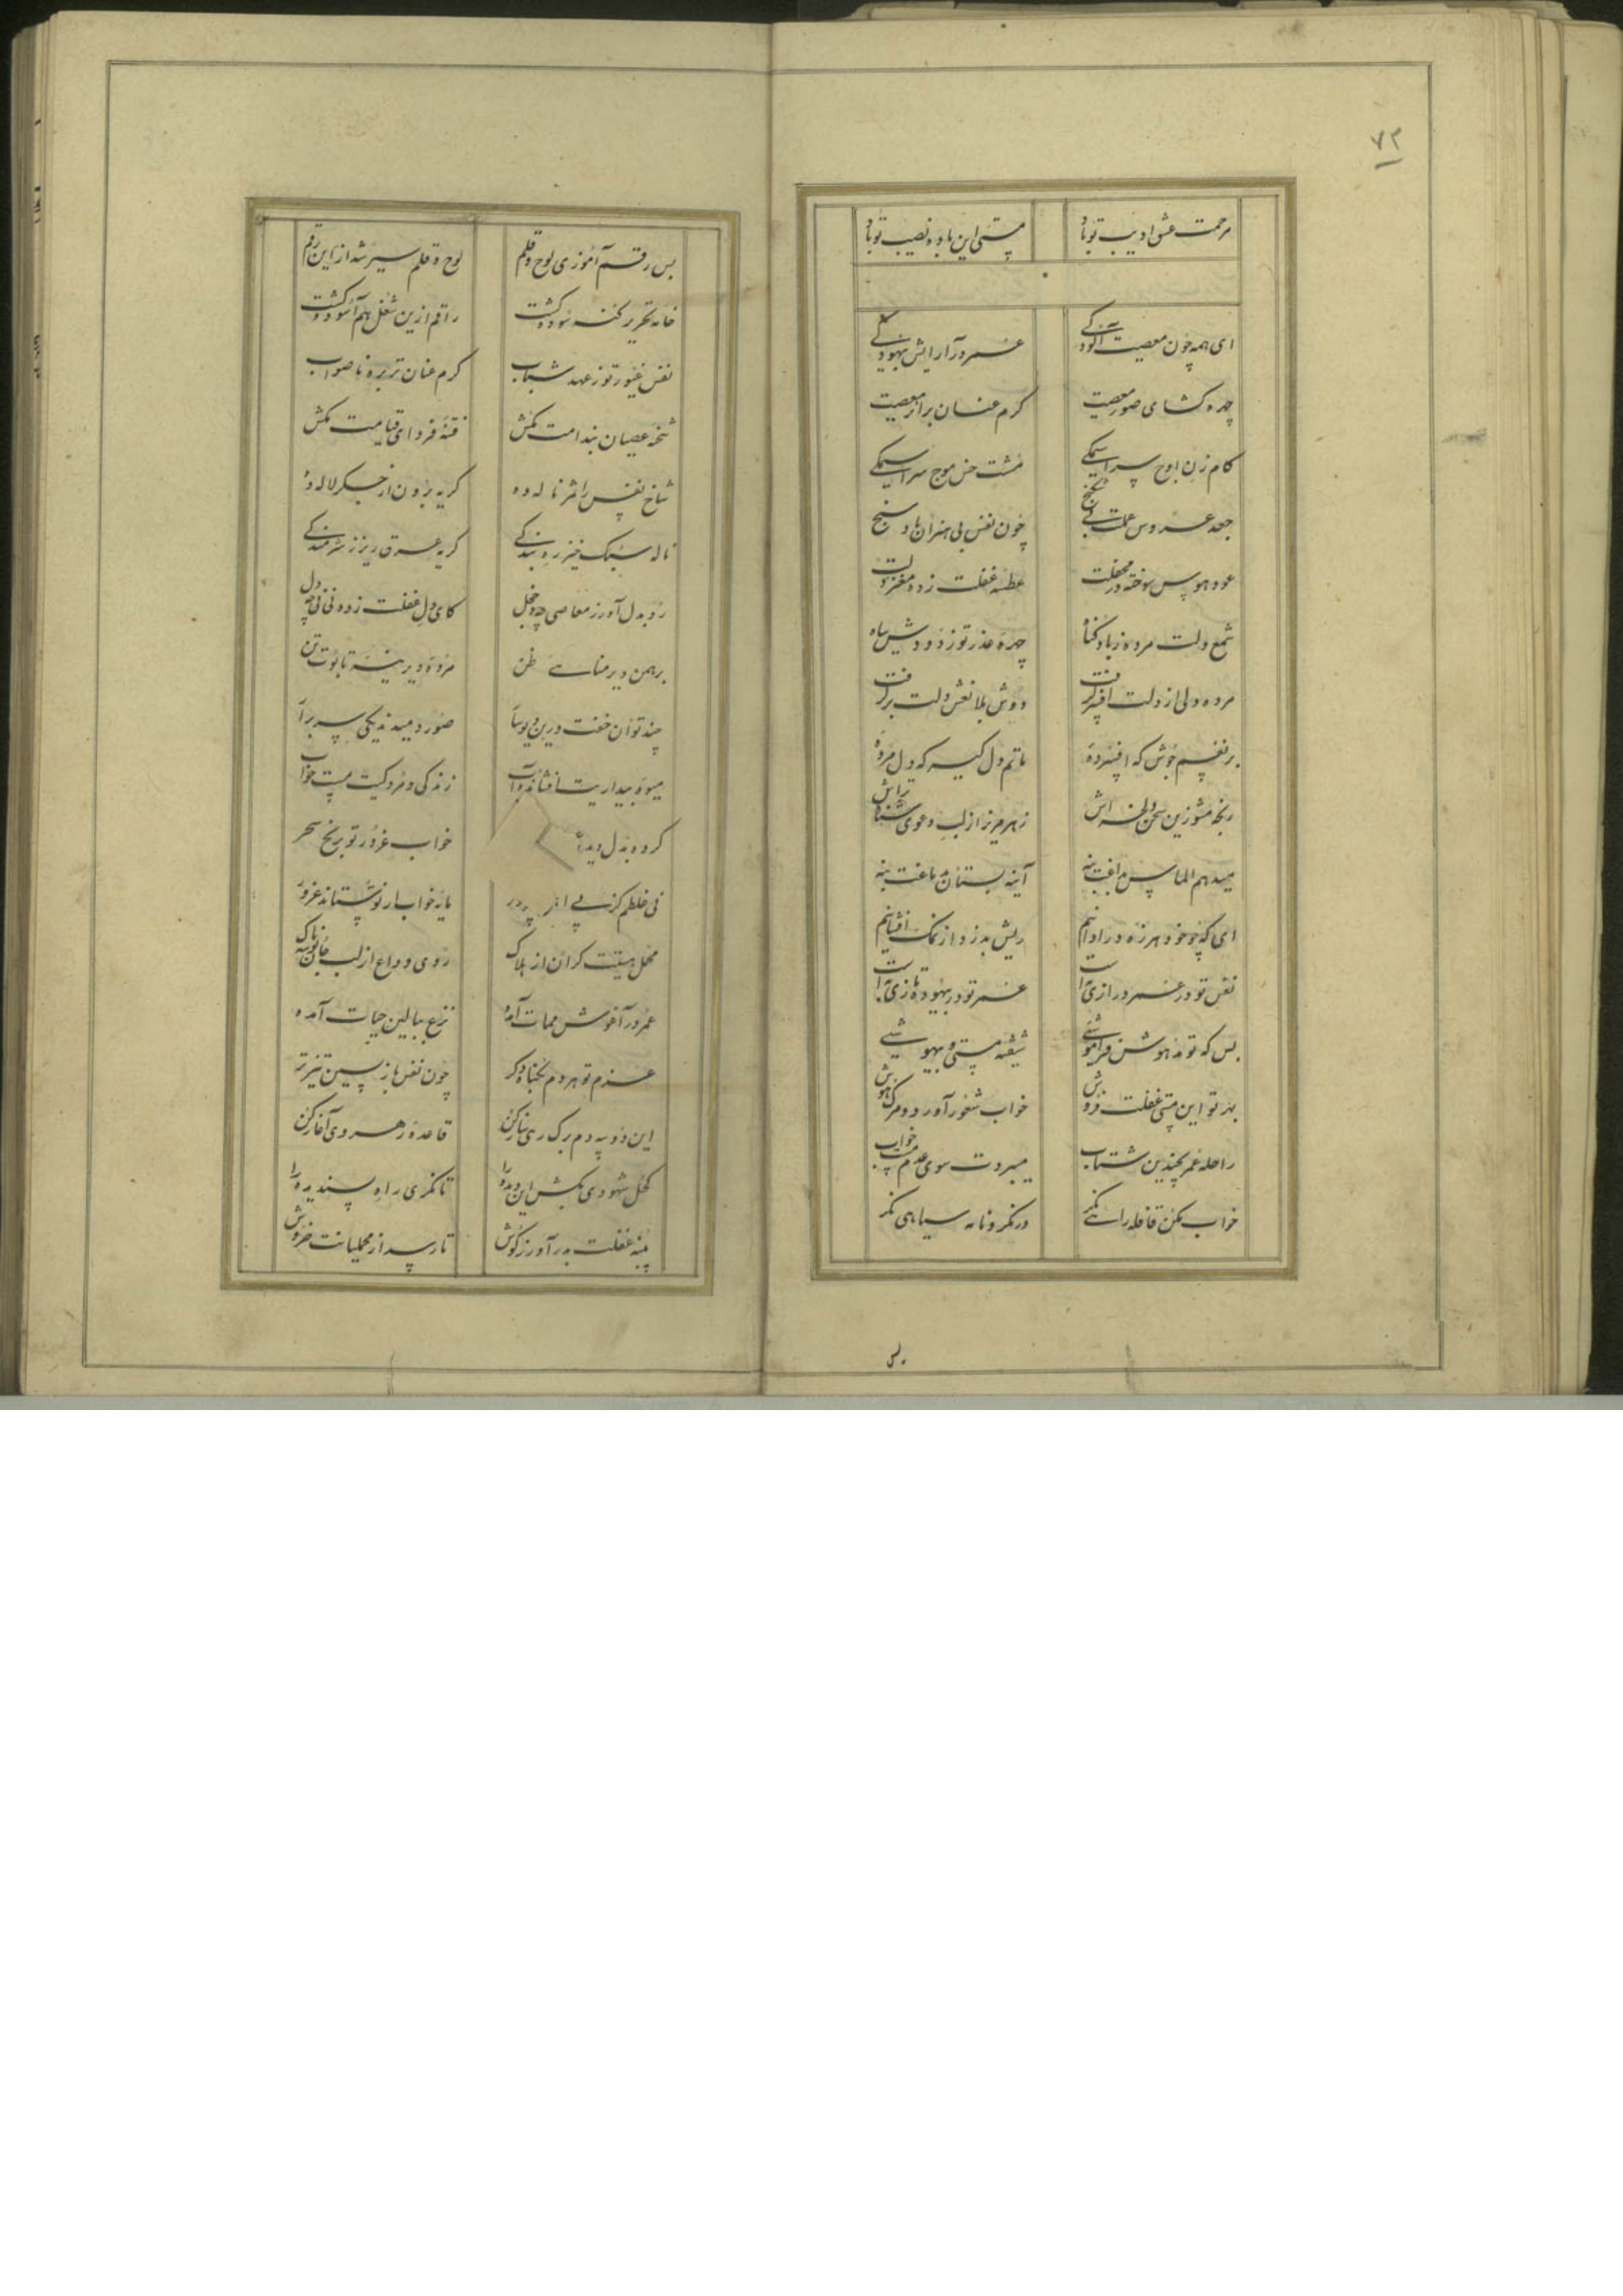 ۷۲
مرحمت عشق ادیب تو باد مستی این باده نصیب تو باد
ای همه چون معصیت آلودگی عمر در آرایش بیهودگی
چهره کشای صور معصیت کرم عنان بر اثر معصیت
کام زن اوج سراسیمگی مشت خس موج سراسیمگی
جعد عروس عملت چون نفس بی هنران باد سنج
عود هوس سوخته در محفلت عطسه غفلت زده مغز دلت
شمع دلت مرده ز باد کناه چهره عذر تو ز دودش سیاه
مرده دلی از دلت افسر گرفت دوش بلا نعش دلت بر گرفت
بر نفسم جوش که افسرده ماتم دل گیر که دل مرده
رنجه مشو زین سخن دلخراش زهر مریز از لب دعوی تراش
میدهم الماس بداغت بنه آینه بستان بدماغت بنه
ای که چو خود هرزه درا دانیم ریش بدزد از نمک افشانیم
نفس تو در عمر درازی است عمر تو در بیهوده تازی است
بس که تو مدهوش فراموشی شیفته مستی و بیهوشی
بهر تو این مستی غفلت فروش خواب شعور آورد و مرگ هوش
راحله عمر بچندین شتاب میبردت سوی عدم مست خواب
خواب مکن قافله راهی نکر در نکر و نامه سیاهی نکر
بس
بس رقم آموزی لوح و قلم لوح و قلم سیر شد از این رقم
خامه تحریر کنه سوده گشت راقم ازین شغل هم آسوده گشت
نفس غیور تو ز عهد شباب کرم عنان تر بره ناصواب
شحنه عصیان بندامت بکش فتنه فردای قیامت بکش
شاخ نفس را ثمر ناله ده کریه برون از جکر لاله ده
ناله سبک خیز ره بندگی کریه عرق ریز ز شرمندگی
رو بدل آور ز معاصی خجل کای دل غفلت زده
برهمن دیر مناسی ظن مرده دیرینه تابوت تن
چند توان خفت درین صور دمیدند یکی سر برآر
میوه بیداریت افشانده آب زندکی و مردکیت مست خواب
کرده بدل خواب غرور تو برنخ سحر
نی غلطم کز پی مایه خواب از تو ستاند غرور
محمل هستیت کران از هلاک روی وداع از لب جان بوسه ناک
عمر در آغوش ممات آمده نزع ببالین حیات آمده
عزم تو هر دم بکناه دکر چون نفس بازپسین تیزتر
این دو سه دم برک رهی ساز کن قاعده رهروی آغاز کن
کحل شهودی بکش این دیده را تا نکری راه پسندیده را
پنبه غفلت بدر آور ز گوش تا رسد از محملیانت خروش